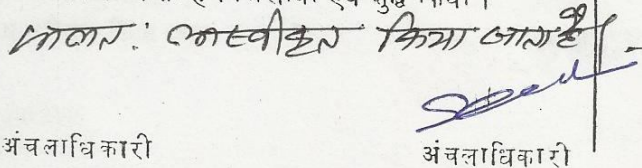 फलतः अस्वीकृत किया जाता है
अंचलाधिकारी अंचलाधिकारी